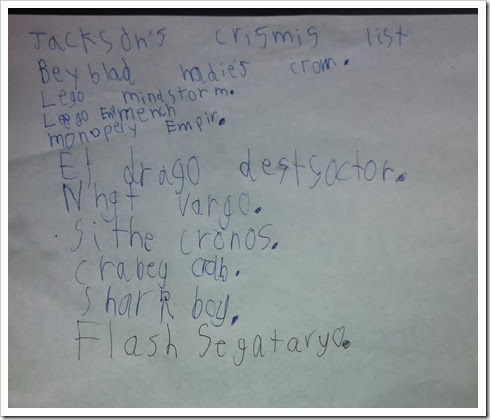 Jackson's crismis list
Beyblad hadie's crom.
Lego mindstorm.
Lego Enlmench
monopely Empir.
El drago destsoctor.
N'hgt vargo.
Sithe cronos.
crabey crab.
Shark boy.
Flash Segataryo.